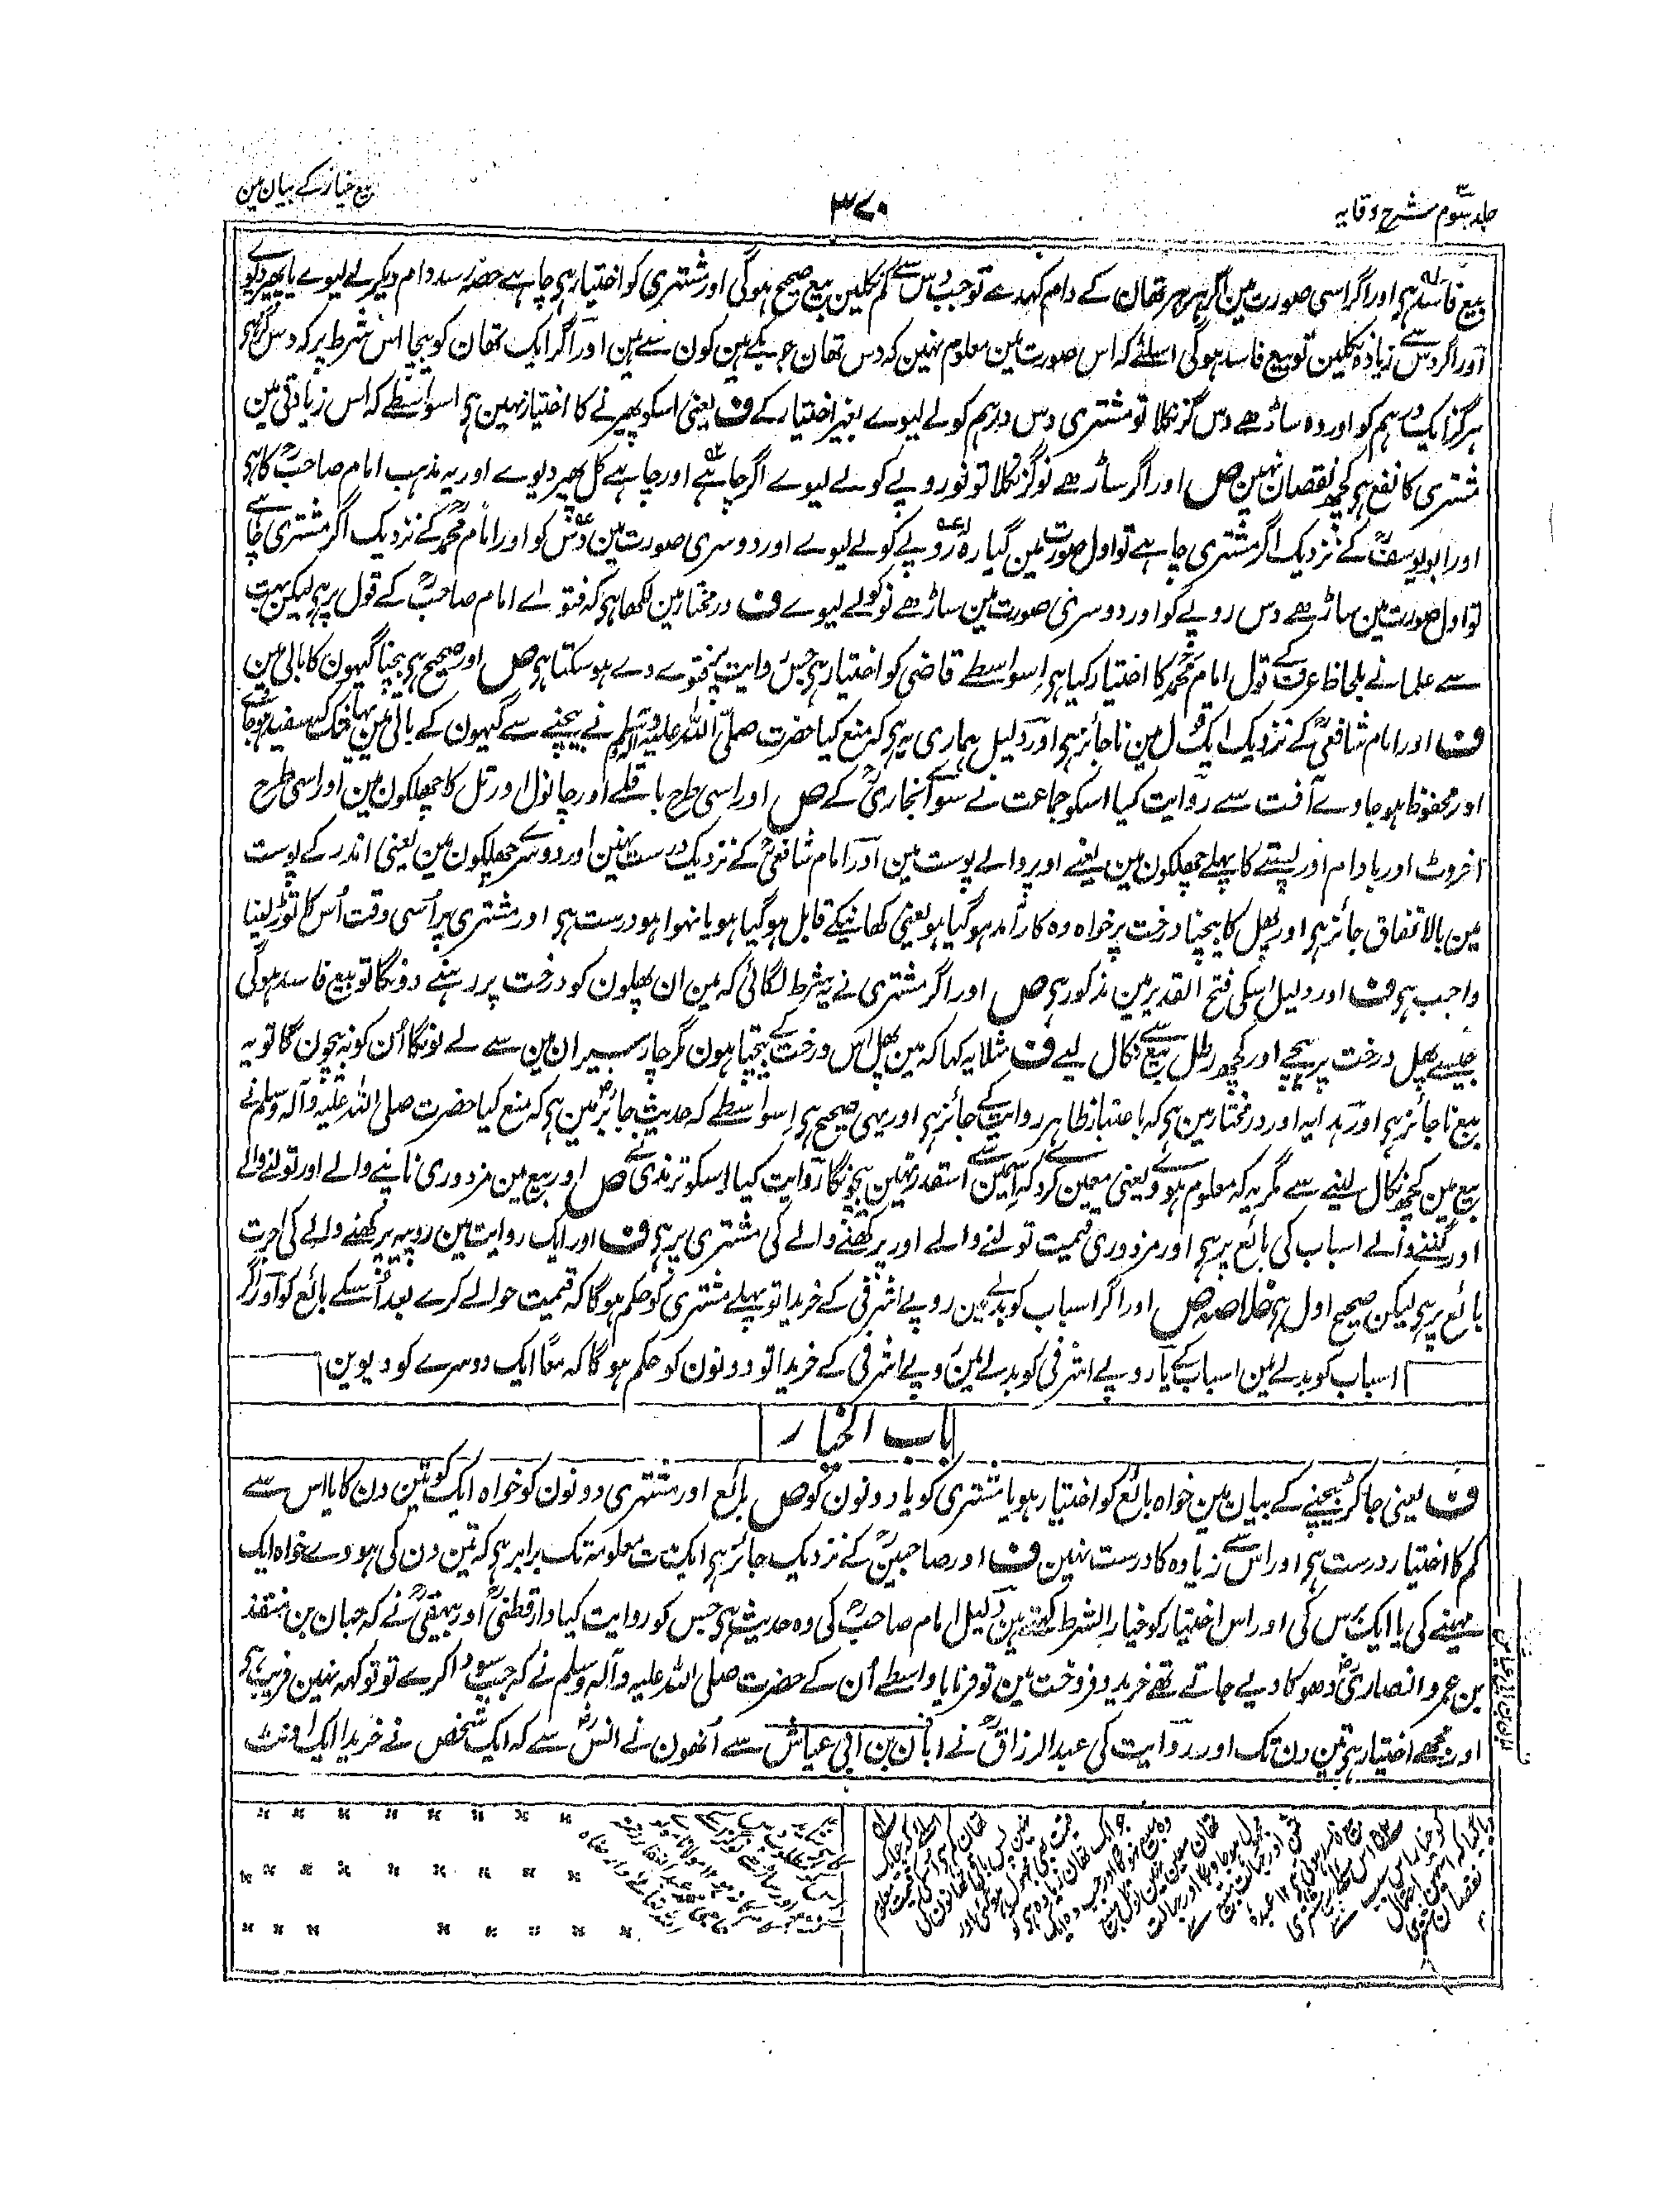 جلد سوم شرح وقایہ
۳۷۰
بیع خیار کے بیان مین
بیع فاسد ہی اور اگر اسی صورت مین اگر ہر ہر تھان کے دام کہدے تو جب دس سے کم نکلین بیع صحیح ہوگی اور مشتری کو اختیار ہی چاہے حصہ رسد دام دیکر لے لیوے یا پھیر دیوے
اور اگر دس سے زیادہ نکلین تو بیع فاسد ہوگی اسلئے کہ اس صورت مین معلوم نہین کہ دس تھان جو بکے ہین کون سے ہین اور اگر ایک تھان کو بیچا اس شرط پر کہ دس گز ہی
ہر گز ایک درہم کو اور وہ ساڑھے دس گز نکلا تو مشتری دس درہم کو لے لیوے بغیر اختیار کے ف یعنی اسکو پھیرنے کا اختیار نہین ہی اسواسطے کہ اس زیادتی مین
مشتری کا نفع ہی کچھ نقصان نہین ص اور اگر ساڑھے نو گز نکلا تو نو روپے کو لے لیوے اگر چاہے اور چاہے کل پھیر دیوے اور یہ مذہب امام صاحبؒ کا ہی
اور ابو یوسفؒ کے نزدیک اگر مشتری چاہے تو اول صورت مین گیارہ روپے کو لے لیوے اور دوسری صورت مین دس کو اور امام محمدؒ کے نزدیک اگر مشتری چاہے
تو اول صورت مین ساڑھے دس روپے کو اور دوسری صورت مین ساڑھے نو کو لے لیوے ف در مختار مین لکھا ہی کہ فتوے امام صاحبؒ کے قول پر ہی لیکن بہت
سے علما نے بلحاظ عرف کے قول امام محمدؒ کا اختیار کیا ہی اسواسطے قاضی کو اختیار ہی جس روایت پر فتوے دے ہو سکتا ہی ص اور صحیح ہی بیچنا گیہون کا بالی مین
ف اور امام شافعیؒ کے نزدیک ایک قول مین ناجائز ہی اور دلیل ہماری یہ ہی کہ منع کیا حضرت صلی اللہ علیہ وآلہ وسلم نے بیچنے سے گیہون کے بالی مین یہانتک کہ سفید ہو جائے
اور محفوظ ہو جاوے آفت سے روایت کیا اسکو جماعت نے سوا بخاریؒ کے ص اور اسی طرح باقلے اور چانول اور تل کا چھلکون مین اور اسی طرح
اخروٹ اور بادام اور پستے کا پہلے چھلکون مین یعنے اوپر والے پوست مین اور امام شافعیؒ کے نزدیک درست نہین اور دوسرے چھلکون مین یعنی اندر کے پوست
مین بالاتفاق جائز ہی اور پھل کا بیچنا درخت پر خواہ وہ کار آمد ہو گیا ہو یعنی کھانیکے قابل ہو گیا ہو یا نہوا ہو درست ہی اور مشتری پر اسی وقت اُس کا توڑ لینا
واجب ہی ف اور دلیل اسکی فتح القدیر مین مذکور ہی ص اور اگر مشتری نے یہ شرط لگائی کہ مین ان پھلون کو درخت پر رہنے دونگا تو بیع فاسد ہوگی
جیسے پھل درخت پر بیچے اور کچھ رطل بیع سے نکال لیے ف مثلا یہ کہا کہ مین پھل اس درخت کے بیچتا ہون مگر چار سیر ان مین سے لے لونگا اُن کو نہ بیچون گا تو یہ
بیع ناجائز ہی اور ہدایہ اور در مختار مین ہی کہ باعتبار ظاہر روایت کے جائز ہی اور یہی صحیح ہی اسواسطے کہ حدیث جابرؓ مین ہی کہ منع کیا حضرت صلی اللہ علیہ وآلہ وسلم نے
بیع مین کچھ نکال لینے سے مگر یہ کہ معلوم ہووے یعنی معین کردے کہ اسمین سے اسقدر نہین بیچونگا روایت کیا اسکو ترمذی نے ص اور بیع مین مزدوری ناپنے والے اور تولنے والے
اور گننے والے اسباب کی بائع پر ہی اور مزدوری قیمت تولنے والے اور پرکھنے والے کی مشتری پر ہی ف اور ایک روایت مین روپیہ پرکھنے والے کی اجرت
بائع پر ہی لیکن صحیح اول ہی خلاصہ ص اور اگر اسباب کو بدلے مین روپے اشرفی کے خریدا تو پہلے مشتری کو حکم ہوگا کہ قیمت حوالے کرے بعد اُسکے بائع کو اور اگر
اسباب کو بدلے مین اسباب کے یا روپے اشرفی کو بدلے مین روپے اشرفی کے خریدا تو دونون کو حکم ہوگا کہ معًا ایک دوسرے کو دیوین
باب الخیار
ف یعنی جاکڑ بیچنے کے بیان مین خواہ بائع کو اختیار ہو یا مشتری کو یا دونون کو ص بائع اور مشتری دونون کو خواہ ایک کو تین دن کا یا اس سے
کم کا اختیار درست ہی اور اس سے زیادہ کا درست نہین ف اور صاحبینؒ کے نزدیک جائز ہی ایک مدت معلومہ تک برابر ہی کہ تین دن کی ہووے خواہ ایک
مہینے کی یا ایک برس کی اور اس اختیار کو خیار الشرط کہتے ہین دلیل امام صاحبؒ کی وہ حدیث ہی جس کو روایت کیا دارقطنیؒ اور بیہقیؒ نے کہ حبان بن منقذ
بن عمرو انصاریؓ دھوکا دیے جاتے تھے خرید و فروخت مین تو فرمایا واسطے اُن کے حضرت صلی اللہ علیہ وآلہ وسلم نے کہ جب سودا کرے تو تو کہہ نہین فریب ہی
اور مجھے اختیار ہی تین دن تک اور روایت کی عبد الرزاقؒ نے ابان بن ابی عیاش سے اُنھون نے انسؓ سے کہ ایک شخص نے خریدا ایک اونٹ